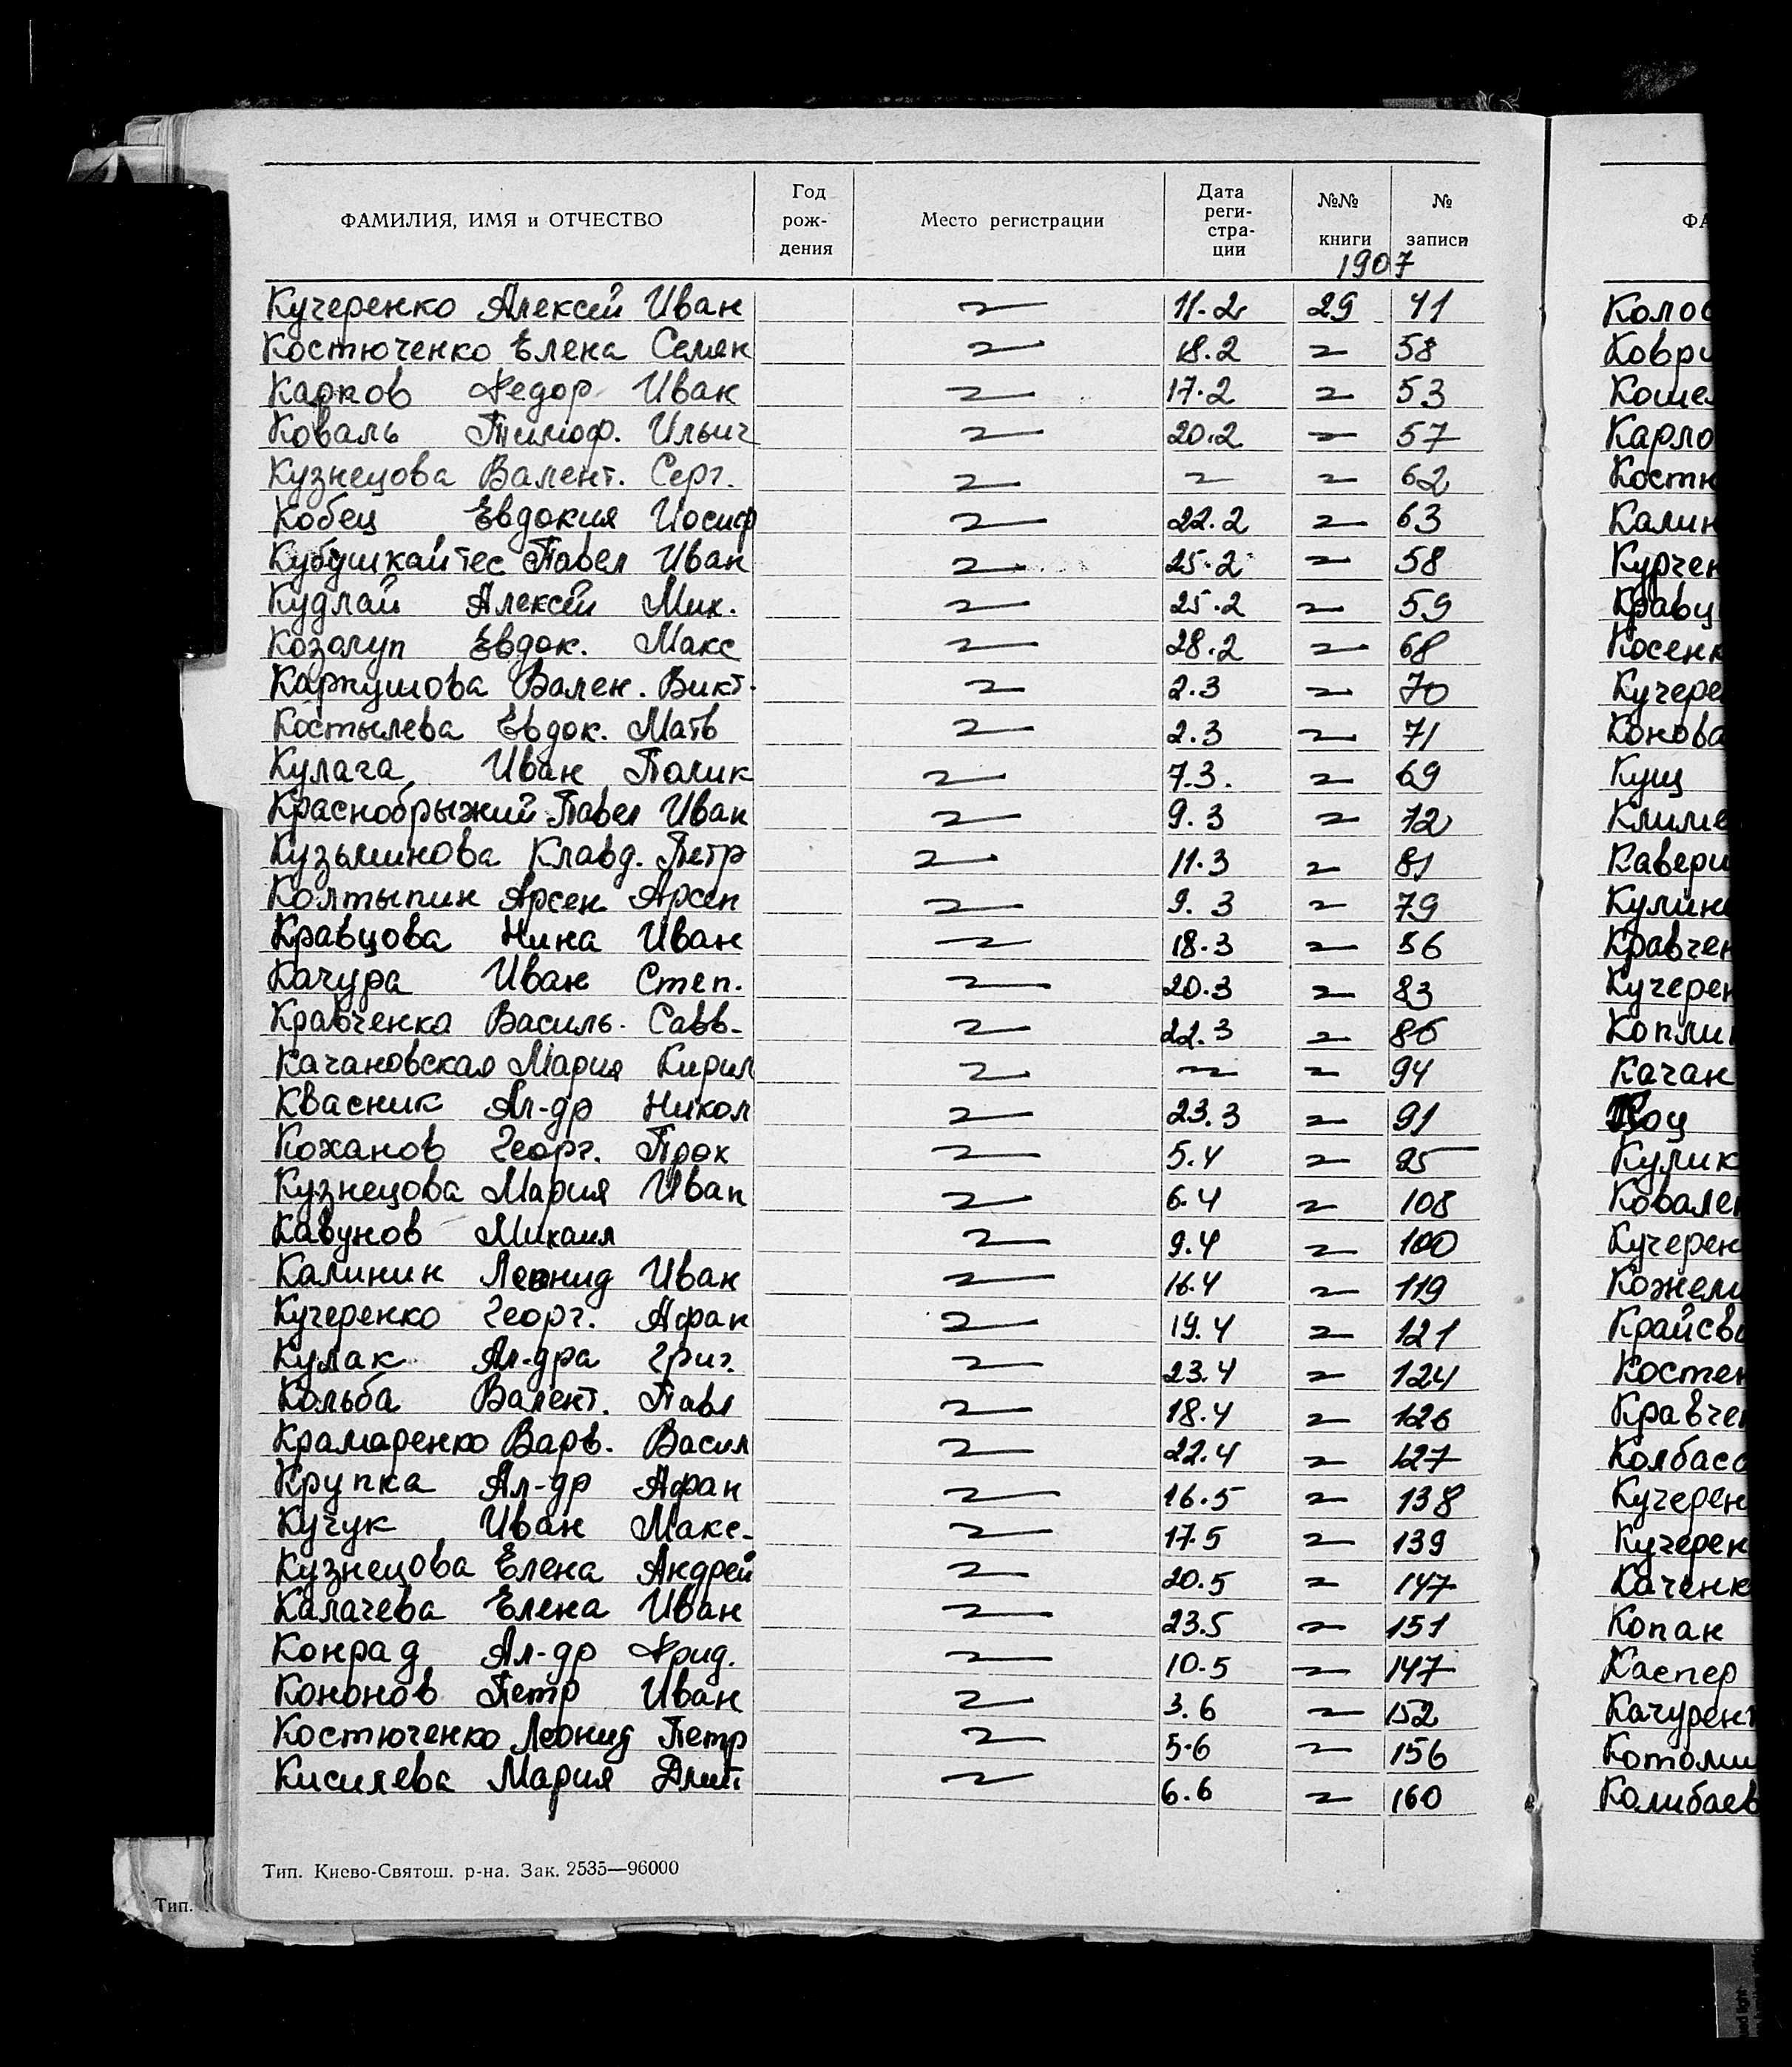 ФАМИЛИЯ, ИМЯ и ОТЧЕСТВО Год рож- дения Место регистрации Дата реги- стра- ции №№ книги № записи
1907
Кучеренко Алексей Иван 〃 11.2 29 41
Костюченко Елена Семен 〃 18.2 〃 58
Карпов Федор Иван 〃 17.2 〃 53
Коваль Тимоф. Ильич 〃 20.2 〃 57
Кузнецова Валент. Серг. 〃 〃 〃 62
Кобец Евдокия Иосиф 〃 22.2 〃 63
Кубушкайтес Павел Иван 〃 25.2 〃 58
Кудлай Алексей Мих. 〃 25.2 〃 59
Козолуп Евдок. Макс 〃 28.2 〃 68
Карпушова Вален. Викт. 〃 2.3 〃 70
Костылева Евдок. Матв 〃 2.3 〃 71
Кулага Иван Полик 〃 7.3. 〃 69
Краснобрыжий Павел Иван 〃 9.3 〃 72
Кузьминова Клавд. Петр 〃 11.3 〃 81
Колтыпин Арсен Арсен 〃 9.3 〃 79
Кравцова Нина Иван 〃 18.3 〃 56
Качура Иван Степ. 〃 20.3 〃 83
Кравченко Василь. Савв. 〃 22.3 〃 86
Качановская Мария Кирил 〃 〃 〃 94
Квасник Ал-др Никол 〃 23.3 〃 91
Коханов Георг. Прох 〃 5.4 〃 95
Кузнецова Мария Иван 〃 6.4 〃 108
Кавунов Михаил 〃 9.4 〃 100
Калинин Леонид Иван 〃 16.4 〃 119
Кучеренко Георг. Афан 〃 19.4 〃 121
Кулак Ал-дра Григ. 〃 23.4 〃 124
Кольба Валент. Павл 〃 18.4 〃 126
Крамаренко Варв. Васил 〃 22.4 〃 127
Крупка Ал-др Афан 〃 16.5 〃 138
Кучук Иван Макс. 〃 17.5 〃 139
Кузнецова Елена Андрей 〃 20.5 〃 147
Калачева Елена Иван 〃 23.5 〃 151
Конрад Ал-др Фрид. 〃 10.5 〃 147
Кононов Петр Иван 〃 3.6 〃 152
Костюченко Леонид Петр 〃 5.6 〃 156
Кисилева Мария Дмит 〃 6.6 〃 160
Тип. Киево-Святош. р-на. Зак. 2535—96000
Тип.
ФА
Колос
Коври
Кошел
Карло
Костю
Калин
Курчен
Кравц
Косенк
Кучере
Конова
Кущ
Климе
Кавери
Кулин
Кравчен
Кучерен
Копли
Качан
Коц
Кулик
Ковален
Кучерен
Кожем
Крайсв
Костен
Кравчен
Колбасо
Кучерен
Кучерен
Каченк
Копан
Каспер
Качурен
Котоми
Колибаев